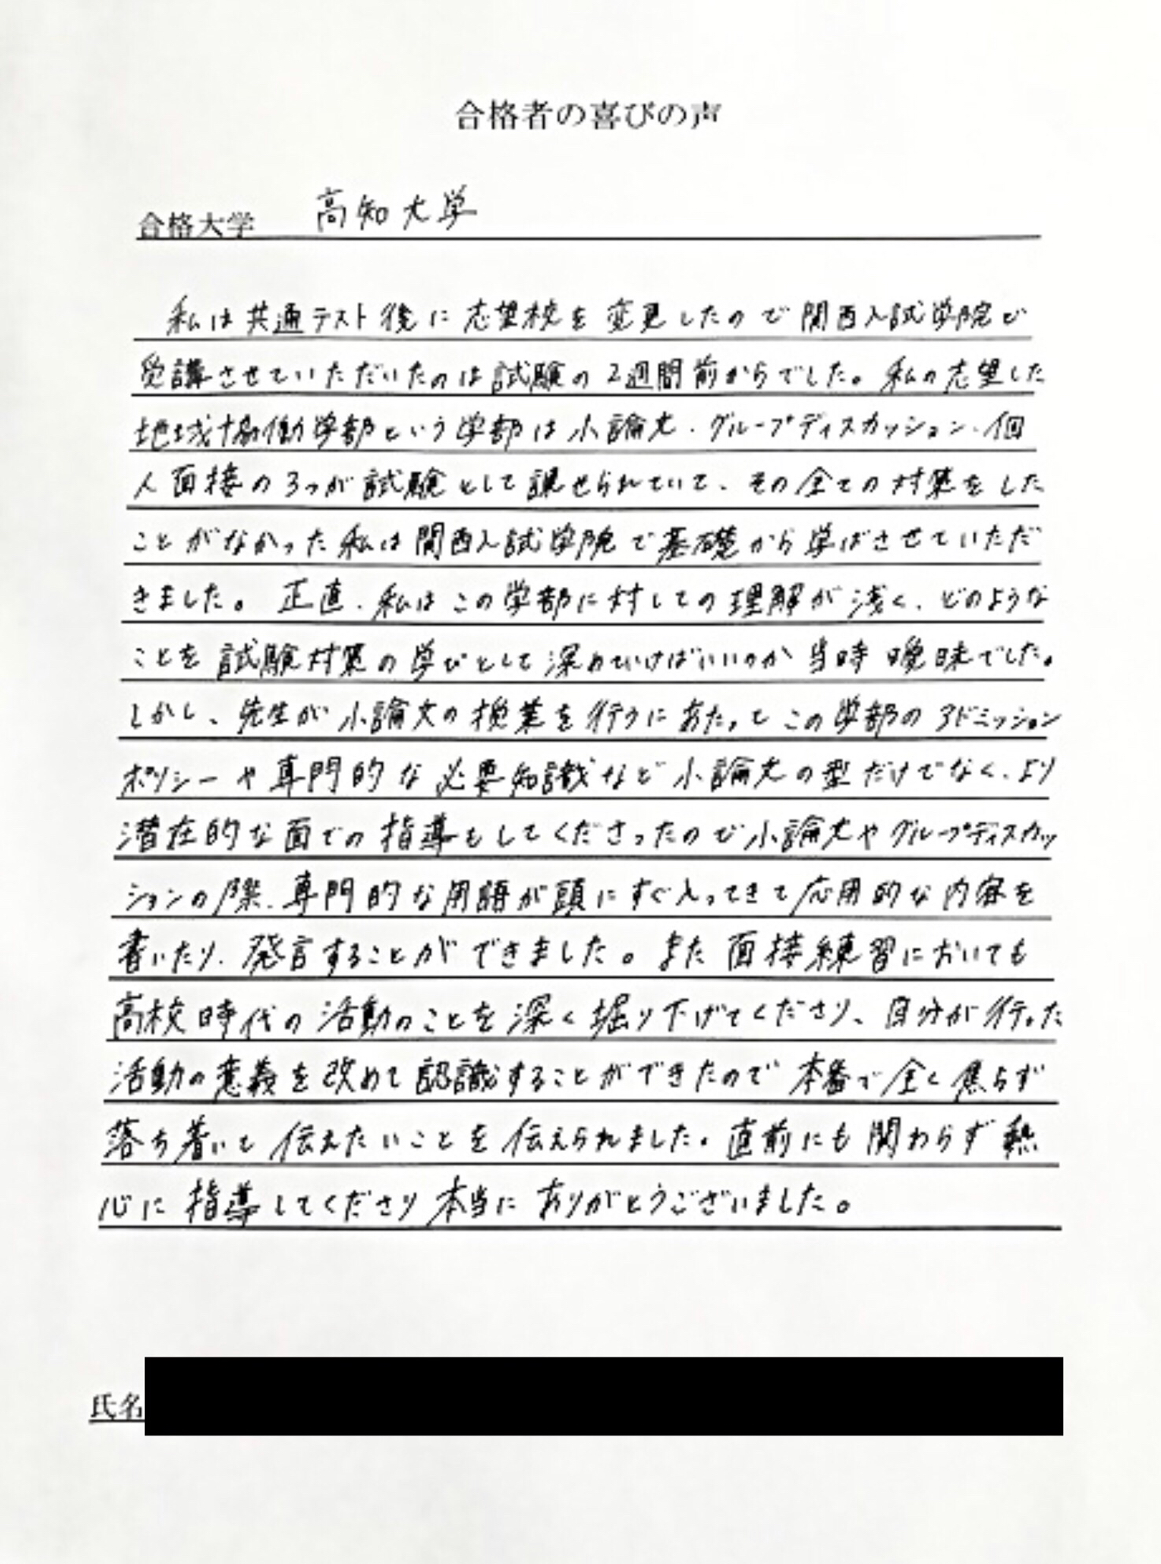 合格者の喜びの声
合格大学 高知大学
私は共通テスト後に志望校を変更したので関西入試学院で
受講させていただいたのは試験の2週間前からでした。私の志望した
地域協働学部という学部は小論文・グループディスカッション・個
人面接の3つが試験として課せられていて、その全ての対策をした
ことがなかった私は関西入試学院で基礎から学ばさせていただ
きました。正直、私はこの学部に対しての理解が浅く、どのような
ことを試験対策の学びとして深めていけばいいのか当時曖昧でした。
しかし、先生が小論文の授業を行うにあたってこの学部のアドミッション
ポリシーや専門的な必要知識など小論文の型だけでなく、より
潜在的な面での指導もしてくださったので小論文やグループディスカッ
ションの際、専門的な用語が頭にすぐ入ってきて応用的な内容を
書いたり、発言することができました。また面接練習においても
高校時代の活動のことを深く掘り下げてくださり、自分が行った
活動の意義を改めて認識することができたので本番で全く焦らず
落ち着いて伝えたいことを伝えられました。直前にも関わらず熱
心に指導してくださり本当にありがとうございました。
氏名